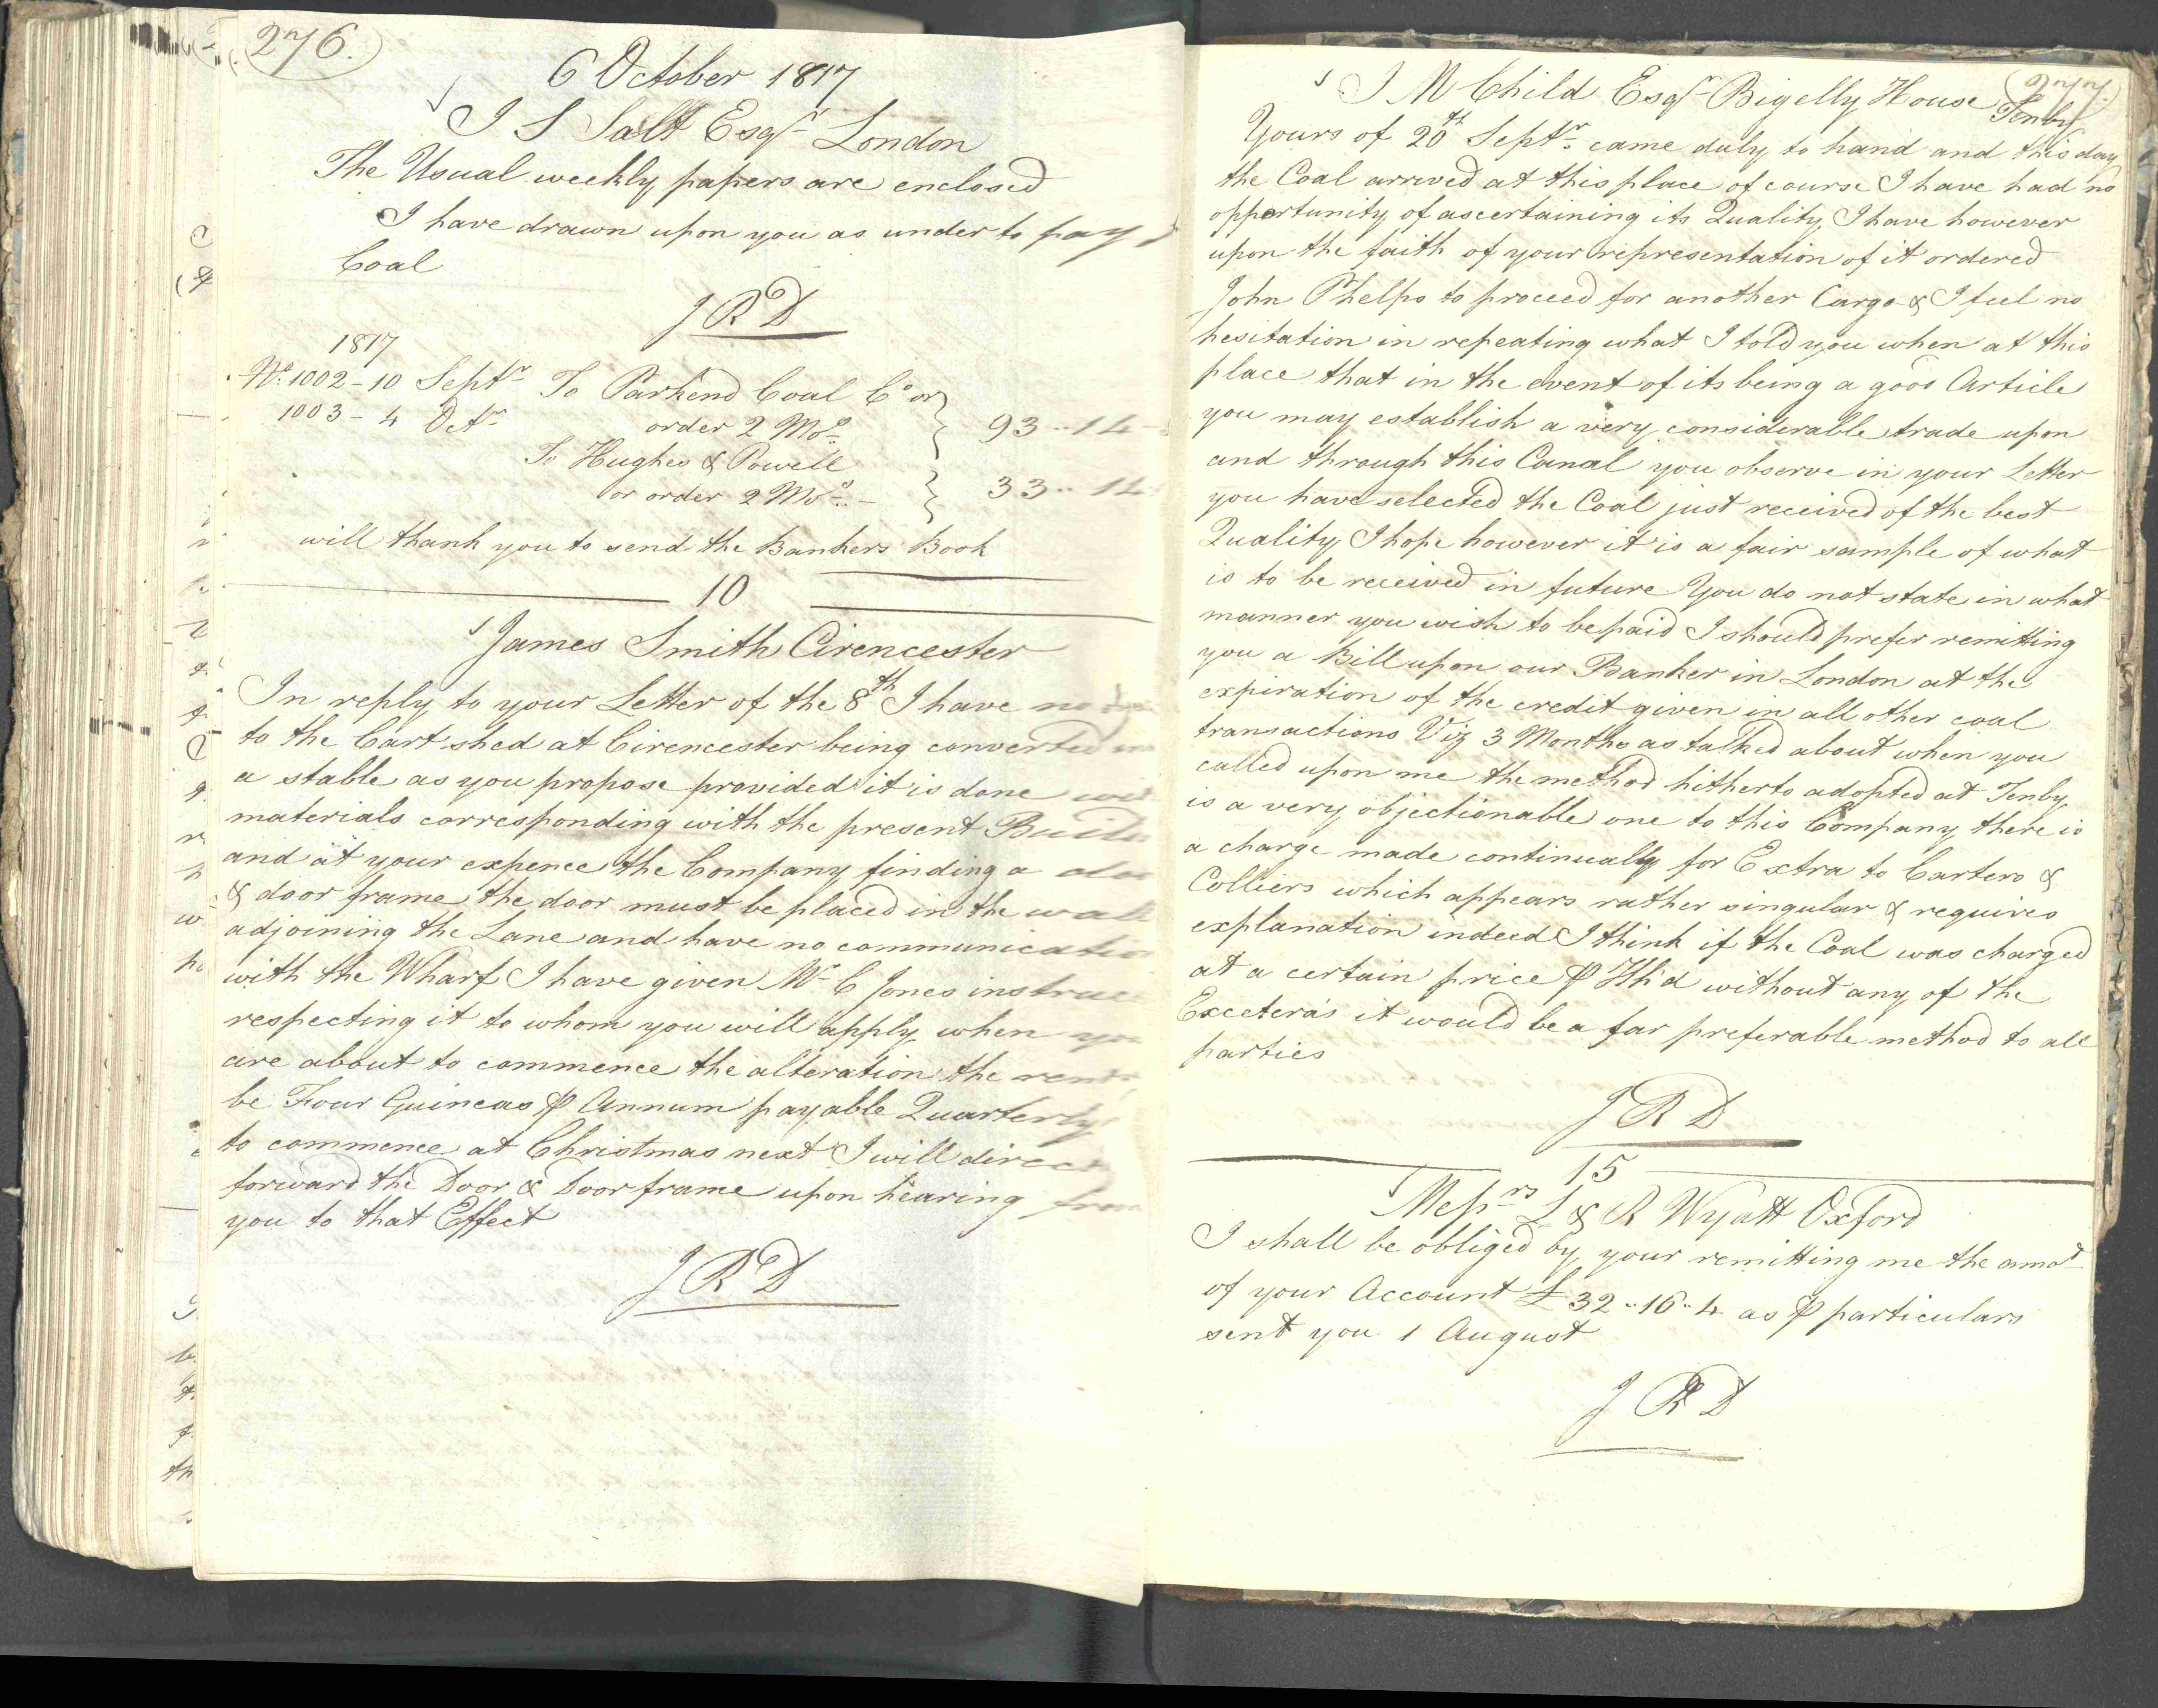 276.
6 October 1817
I S Salt Esqr London
The Usual weekly papers are enclosed
I have drawn upon you as under to pay
Coal
JRD
1817
No. 1002 - 10 Septr To Parkend Coal Co or
order 2 Mos } 93 .. 14
1003 - 4 Octr
To Hughes & Powell
or order 2 Mos } 33 .. 14
will thank you to send the Bankers Book
10
James Smith Cirencester
In reply to your Letter of the 8th I have no
to the Cart shed at Cirencester being converted
a stable as you propose provided it is done
materials corresponding with the present
and at your expence the Company finding a
& door frame the door must be placed in the wall
adjoining the Lane and have no communication
with the Wharf I have given Mr C Jones
respecting it to whom you will apply when
are about to commence the alteration the
be Four Guineas ⅌ Annum payable Quarterly
to commence at Christmas next I will direct
forward the Door & Doorframe upon hearing from
you to that Effect
JRD
277.
I M Child Esqr Bigelly House Tenby
Yours of 20th Septr came duly to hand and this day
the Coal arrived at this place of course I have had no
opportunity of ascertaining its Quality, I have however
upon the faith of your representation of it ordered
John Phelps to proceed for another Cargo & I feel no
hesitation in repeating what I told you when at this
place that in the event of its being a good Article
you may establish a very considerable trade upon
and through this Canal you observe in your Letter
you have selected the Coal just received of the best
Quality I hope however it is a fair sample of what
is to be received in future You do not state in what
manner you wish to be paid I should prefer remitting
you a Bill upon our Banker in London at the
expiration of the credit given in all other coal
transactions Viz 3 Months as talked about when you
called upon me the method hitherto adopted at Tenby
is a very objectionable one to this Company there is
a charge made continually for Extra to Carters &
Colliers which appears rather singular & requires
explanation indeed I think if the Coal was charged
at a certain price ⅌ Hhd without any of the
Exceteras it would be a far preferable method to all
parties
JRD
15
Messrs L & R Wyatt Oxford
I shall be obliged by your remitting me the amot
of your Account £32..16..4 as ⅌ particulars
sent you 1 August
JRD